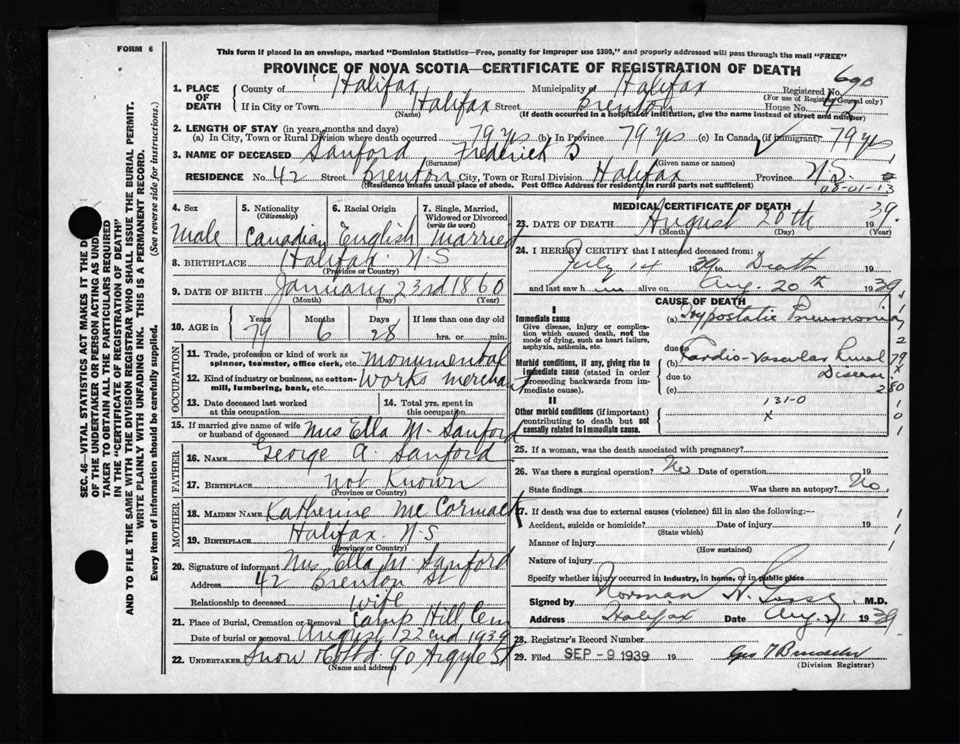 FORM 6
This form if placed in an envelope, marked "Dominion Statistics—Free, penalty for improper use $300," and properly addressed will pass through the mail "FREE"
PROVINCE OF NOVA SCOTIA—CERTIFICATE OF REGISTRATION OF DEATH
1. PLACE OF DEATH
County of Halifax Municipality of Halifax Registered No. 690
(For use of Registrar General only)
If in City or Town Halifax Street Brenton House No. 42
(Name) (If death occurred in a hospital of institution, give the name instead of street and number)
2. LENGTH OF STAY (in years, months and days)
(a) In City, Town or Rural Division where death occurred 79 ys (b) In Province 79 ys (c) In Canada (if immigrant) 79 ys
3. NAME OF DECEASED Sanford Frederick
(Surname) (Given name or names)
RESIDENCE No. 42 Street Brenton City, Town or Rural Division Halifax Province N.S.
(Residence means usual place of abode. Post Office Address for residents in rural parts not sufficient)
08-01-13
4. Sex
Male
5. Nationality (Citizenship)
Canadian
6. Racial Origin
English
7. Single, Married, Widowed or Divorced (write the word)
Married
8. BIRTHPLACE Halifax N.S
(Province or Country)
9. DATE OF BIRTH January 23rd 1860
(Month) (Day) (Year)
10. AGE in Years 79 Months 6 Days 28 If less than one day
hrs. or min.
OCCUPATION
11. Trade, profession or kind of work as spinner, teamster, office clerk, etc. Monumental
12. Kind of industry or business, as cotton-mill, lumbering, bank, etc. Works merchant
13. Date deceased last worked at this occupation
14. Total yrs. spent in this occupation
15. If married give name of wife or husband of deceased Mrs Ella M. Sanford
FATHER
16. Name George A. Sanford
17. BIRTHPLACE Not Known
(Province or Country)
MOTHER
18. MAIDEN NAME Katherine McCormack
19. BIRTHPLACE Halifax N.S
(Province or Country)
20. Signature of informant Mrs Ella M Sanford
Address 42 Brenton St
Relationship to deceased wife
21. Place of Burial, Cremation or Removal Camp Hill Cem
Date of burial or removal August 22nd 1939
22. UNDERTAKER Snow & Co Ltd. 90 Argyle St
(Name and address)
MEDICAL CERTIFICATE OF DEATH
23. DATE OF DEATH August 20th 1939.
(Month) (Day) (Year)
24. I HEREBY CERTIFY that I attended deceased from:
July 14 1939 to Death 19
and last saw him alive on Aug. 20th 1939
CAUSE OF DEATH
I
Immediate cause
Give disease, injury or complication which caused death, not the mode of dying, such as heart failure, asphyxia, asthenia, etc.
(a) Hypostatic Pneumonia
due to
Morbid conditions, if any, giving rise to immediate cause (stated in order proceeding backwards from immediate cause).
(b) Cardio-Vascular Renal Disease
due to
(c)
II
Other morbid conditions (if important) contributing to death but not causally related to immediate cause.
131-0
x
25. If a woman, was the death associated with pregnancy?
26. Was there a surgical operation? No Date of operation 19
State findings Was there an autopsy? No.
27. If death was due to external causes (violence) fill in also the following:—
Accident, suicide or homicide? Date of injury 19
(State which)
Manner of injury
(How sustained)
Nature of injury
Specify whether injury occurred in industry, in home, or in public place
Signed by Norman H. M.D.
Address Halifax Date Aug. 21 1939
28. Registrar's Record Number
29. Filed SEP - 9 1939 19
(Division Registrar)
SEC. 46—VITAL STATISTICS ACT MAKES IT THE
OF THE UNDERTAKER OR PERSON ACTING AS UNDER
TAKER TO OBTAIN ALL THE PARTICULARS REQUIRED
IN THE "CERTIFICATE OF REGISTRATION OF DEATH"
AND TO FILE THE SAME WITH THE DIVISION REGISTRAR WHO SHALL ISSUE THE BURIAL PERMIT.
WRITE PLAINLY WITH UNFADING INK. THIS IS A PERMANENT RECORD.
Every item of information should be carefully supplied.
(See reverse side for instructions.)